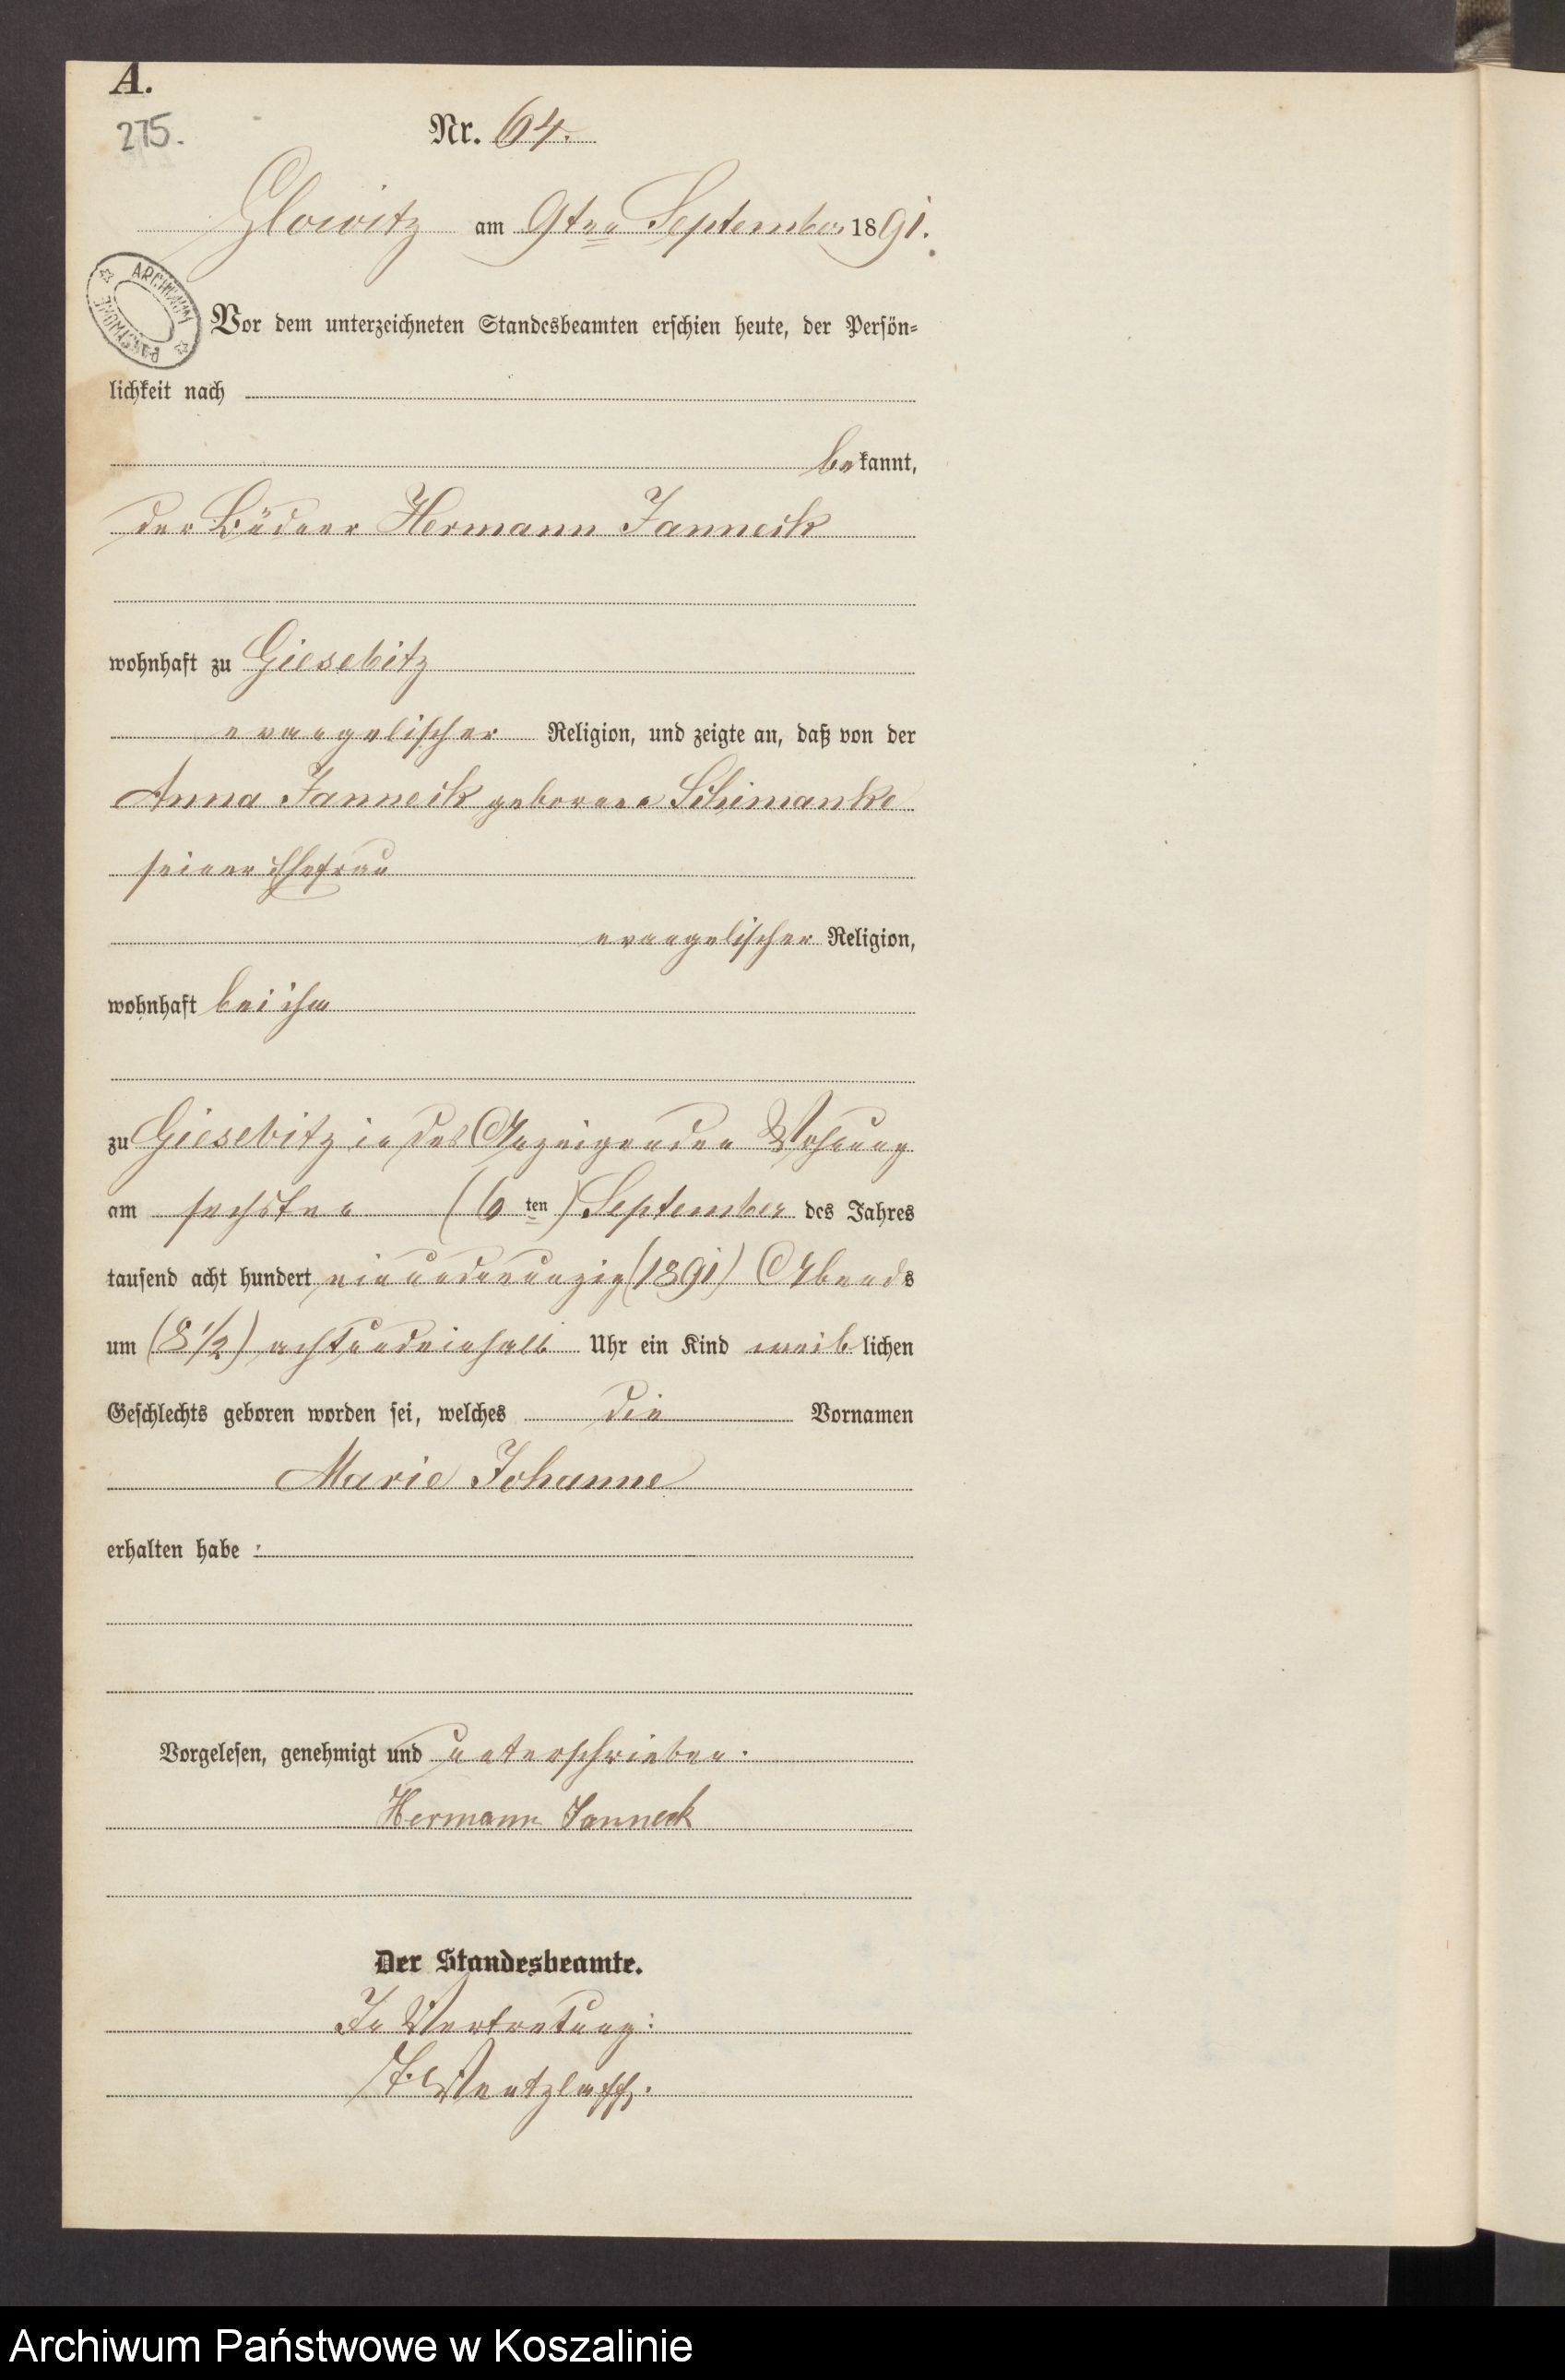 A.
275.
Nr. 64.
Glowitz am 9ten September 1891.
ARCHIWUM PAŃSTWOWE
Vor dem unterzeichneten Standesbeamten erschien heute, der Persön=
lichkeit nach
bekannt,
der Büdner Hermann Janneck
wohnhaft zu Giesebitz
evangelischer Religion, und zeigte an, daß von der
Anna Janneck geborene Schimanke
seiner Ehefrau
evangelischer Religion,
wohnhaft bei ihm
zu Giesebitz in des Anzeigenden Wohnung
am sechsten (6 ten) September des Jahres
tausend acht hundert einundneunzig (1891) Abends
um (8 1/2) achtundeinhalb Uhr ein Kind weiblichen
Geschlechts geboren worden sei, welches die Vornamen
Marie Johanne
erhalten habe :
Vorgelesen, genehmigt und unterschrieben.
Hermann Janneck
Der Standesbeamte.
In Vertretung:
Wentzlaff.
Archiwum Państwowe w Koszalinie